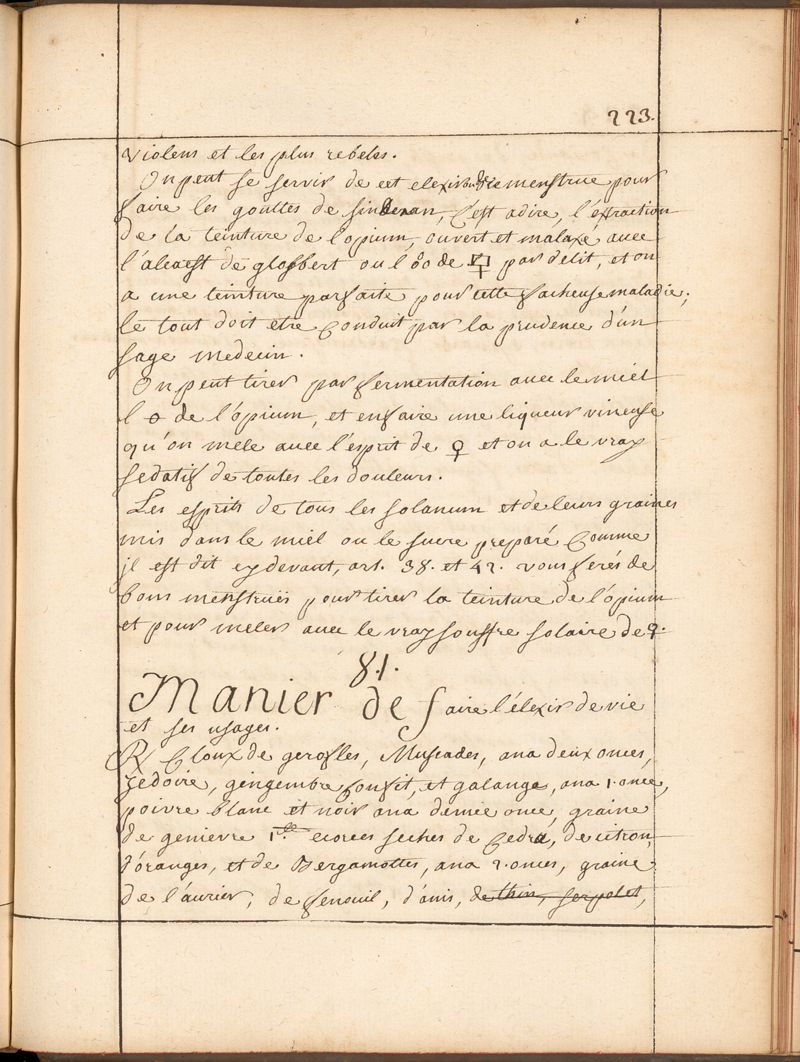 223.
violens et les plus rebeles.
On peut se servir de cet elexir ou de ce menstrue pour
faire les gouttes de sindenan, c'est adire, l'extraction
de la teinture de l'opium, ouvert et malaxé avec
l'alcaest de de par délit, et on
a une teinture parfaite pour cette facheuse maladie;
le tout doit etre conduit par la prudence d'un
sage medecin.
On peut tirer par fermentation avec le miel
l de l'opium, et en faire une liqueur vineuse
qu'on mele avec l'esprit de ♀ et on a le vray
sedatif de toutes les douleurs.
Les esprits de tous les solanum et de leurs graines
mis dans le miel ou le sucre preparé comme
jl est dit cy devant, art. 38. et 42. vous ferés de
bons menstrües pour tirer la teinture de l'opium
et pour meler avec le vray souffre solaire de ♀.
81.
Manier de faire l'élexir de vie
et ses usages.
℞ Cloux de gerofles, Muscades, ana deux onces,
zedoire, gingembre confit, et galange, ana 1. once,
poivre blanc et noir ana demie once, graine
de genievre 1.lle ecorces seches de Cedra, de citron,
d'oranges, et de Bergamottes, ana 2. onces, graine
de l'aurier, de fenouil, d'anis, de thin, serpolet,